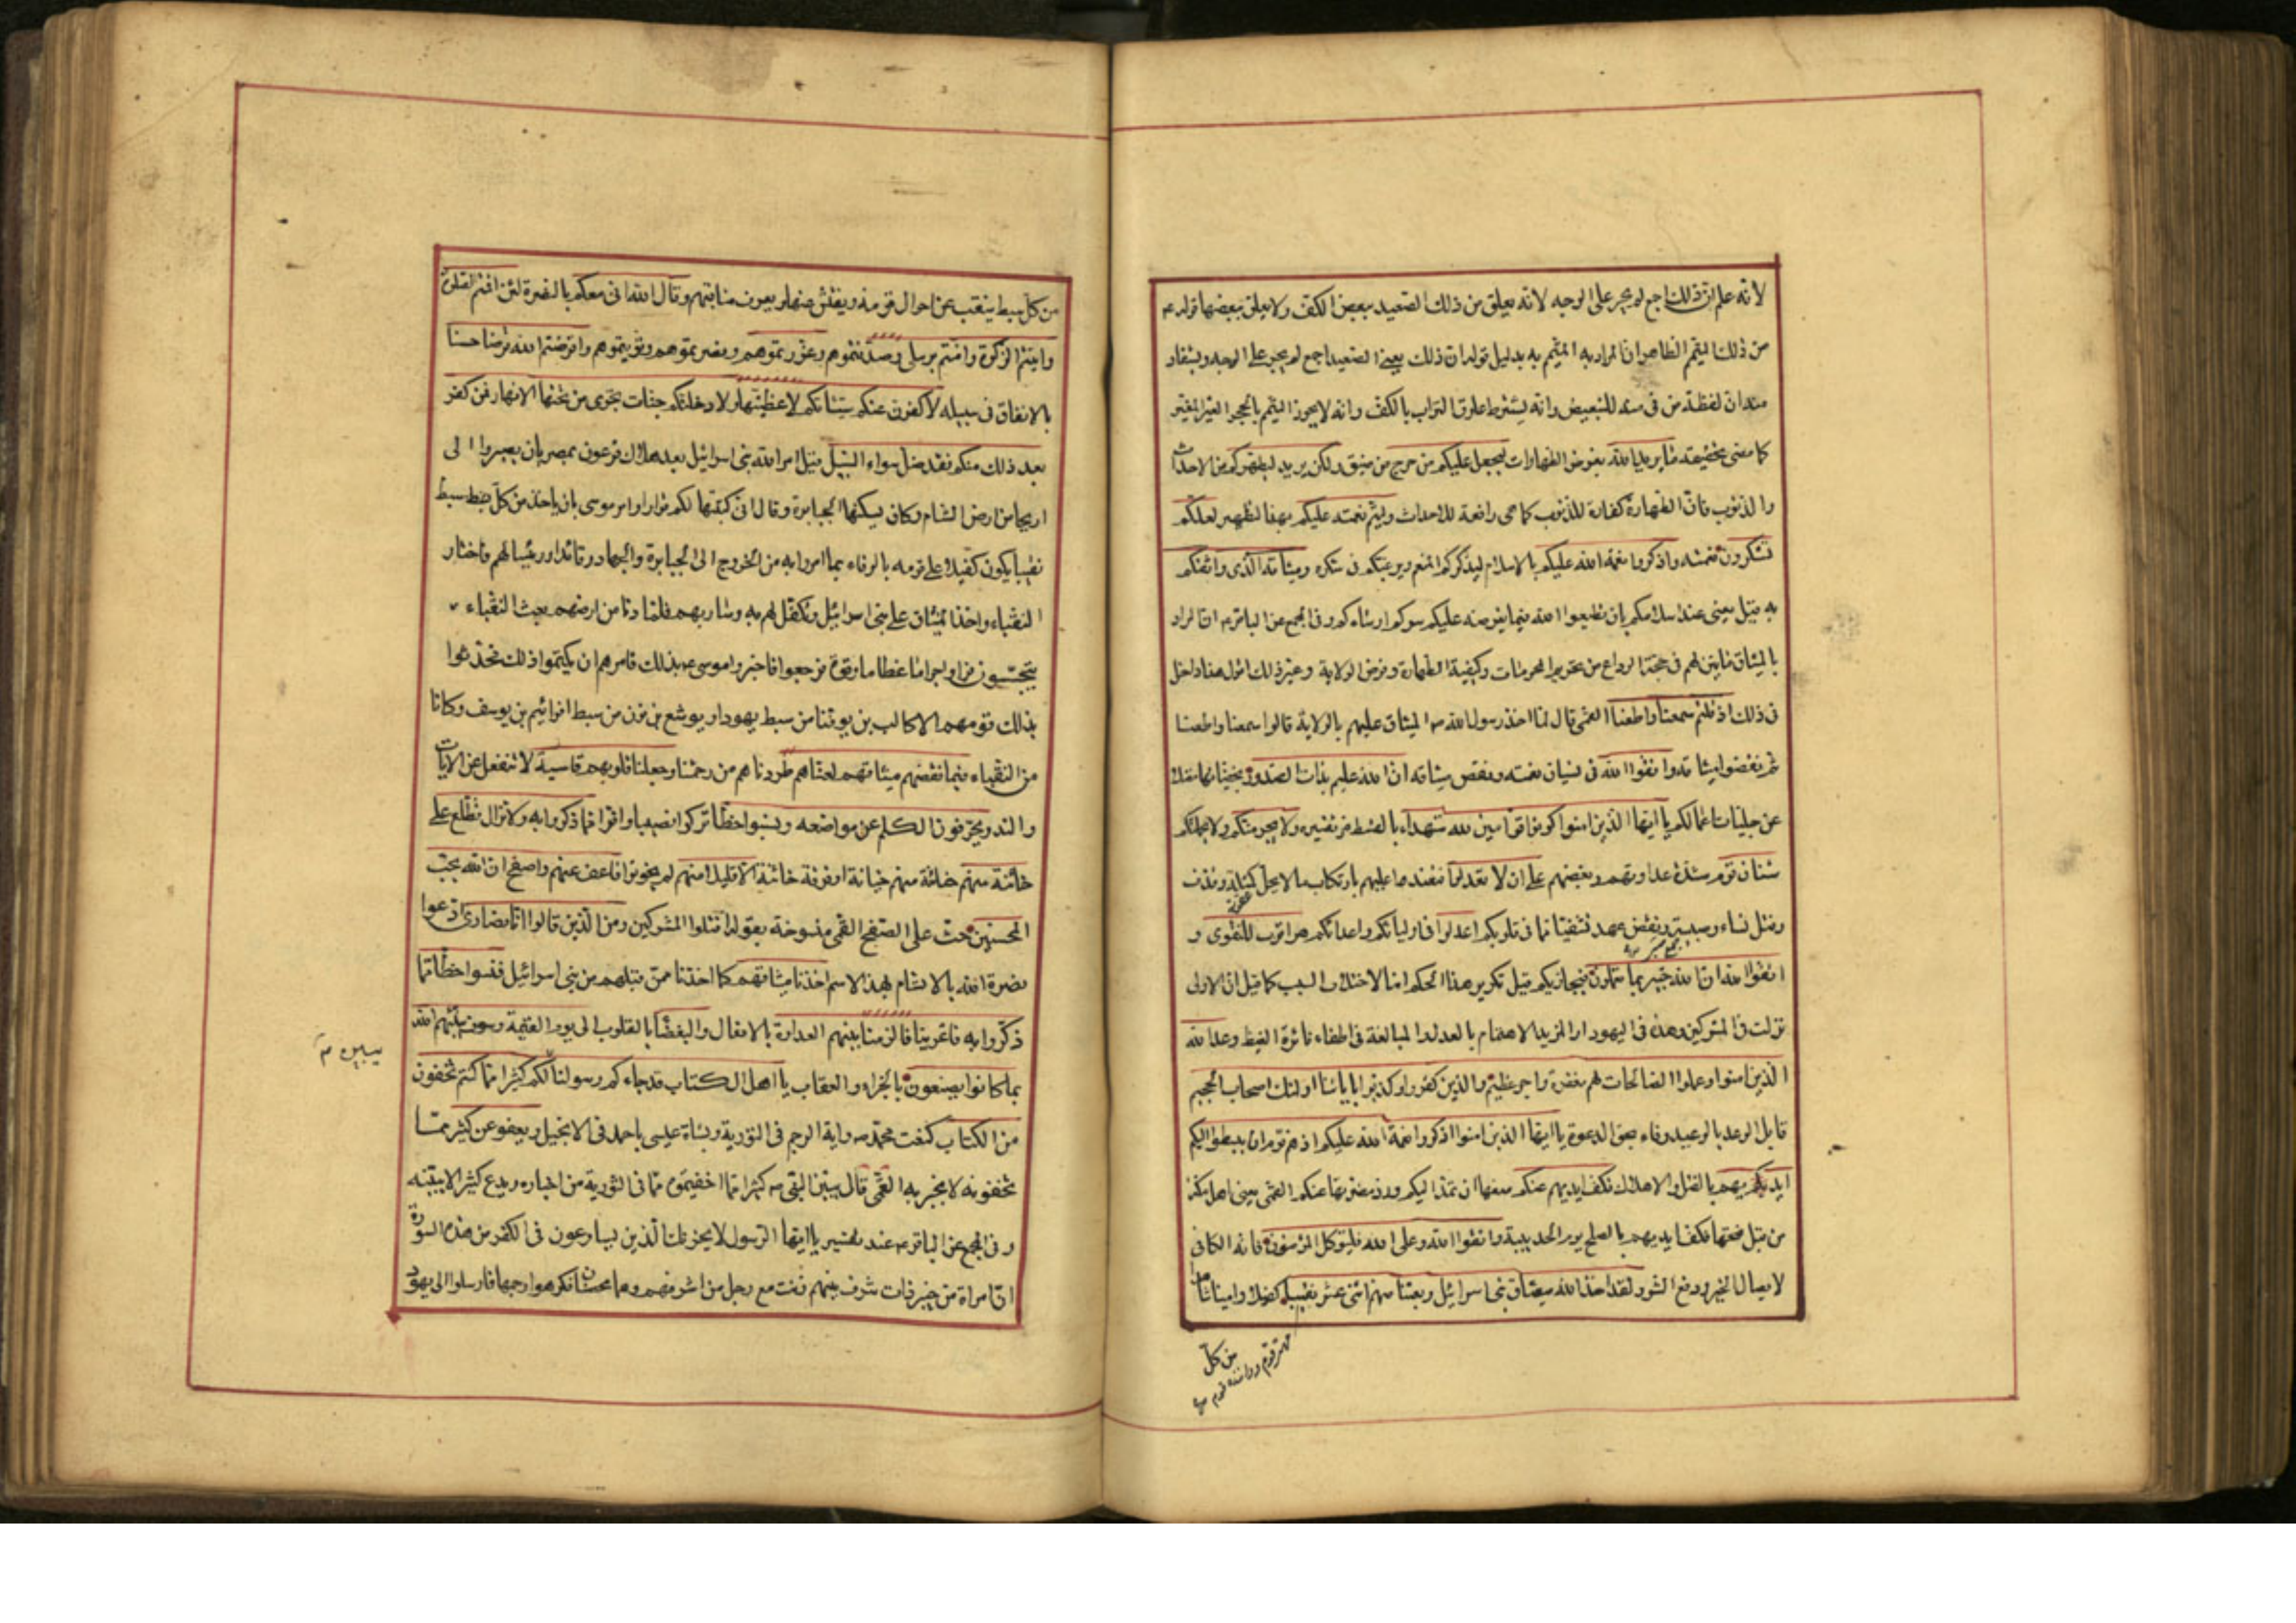 لانه علم ان ذلك اجمع لم يجر على الوجه لانه يعلق من ذلك الصعيد ببعض الكف ولا يعلق ببعضها قوله ع
من ذلك التيمم الظاهر ان المراد به المتيمم به بدليل قوله ان ذلك يعني الصعيد اجمع لم يجر على الوجه ويستفاد
منه ان لفظة من في منه للتبعيض وانه يشترط علوق التراب بالكف وانه لا يجوز التيمم بالحجر الغير المغبر
كما مضى تحقيقه ما يريد الله بفرض الطهارات ليجعل عليكم من حرج من ضيق ولكن يريد ليطهركم من الاحداث
والذنوب فان الطهارة كفارة للذنوب كما هي رافعة للاحداث وليتم نعمته عليكم بهذا التطهير لعلكم
تشكرون نعمته واذكروا نعمة الله عليكم بالاسلام ليذكركم المنعم ويرغبكم في شكره وميثاقه الذي واثقكم
به قيل يعني عند اسلامكم بان تطيعوا الله فيما يفرضه عليكم سركم او ساءكم وفي المجمع عن الباقر ع ان المراد
بالميثاق ما بين لهم في حجة الوداع من تحريم المحرمات وكيفية الطهارة وفرض الولاية وغير ذلك اقول هذا داخل
في ذلك اذ قلتم سمعنا واطعنا القمي قال لما اخذ رسول الله ص الميثاق عليهم بالولاية قالوا سمعنا واطعنا
ثم نقضوا ميثاقه واتقوا الله في نسيان نعمته ونقض ميثاقه ان الله عليم بذات الصدور بخفياتها فضلا
عن جليات اعمالكم يا ايها الذين امنوا كونوا قوامين لله شهداء بالقسط مر تفسيره ولا يجرمنكم ولا يحملنكم
شنان قوم شدة عداوتهم وبغضهم على ان لا تعدلوا فتعتدوا عليهم بارتكاب ما لا يحل كمثلة وقذف
وقتل نساء وصبية ونقض عهد تشفيا مما في قلوبكم اعدلوا في اوليائكم واعدائكم هو اقرب للتقوى و
اتقوا الله ان الله خبير بما تعملون فيجازيكم قيل تكرير هذا الحكم اما لاختلاف السبب كما قيل ان الاولى
نزلت في المشركين وهذه في اليهود او لمزيد الاهتمام بالعدل والمبالغة في اطفاء نائرة الغيظ وعد الله
الذين امنوا وعملوا الصالحات لهم مغفرة واجر عظيم والذين كفروا وكذبوا باياتنا اولئك اصحاب الجحيم
قابل الوعد بالوعيد وفاء بحق الدعوة يا ايها الذين امنوا اذكروا نعمة الله عليكم اذ هم قوم ان يبسطوا اليكم
ايديهم بالقتل والاهلاك فكف ايديهم عنكم منعها ان تمد اليكم ورد مضرتها عنكم القمي يعني اهل مكة
من قبل فتحها فكف ايديهم بالصلح يوم الحديبية واتقوا الله وعلى الله فليتوكل المؤمنون فانه الكافي
لايصال الخير ودفع الشر ولقد اخذ الله ميثاق بني اسرائيل وبعثنا منهم اثني عشر نقيبا كفيلا وامينا شاهدا
من كل
مهتر قوم وداننده قوم
من كل سبط ينقب عن احوال قومه ويفتش عنها ويعرف مناقبهم وقال الله اني معكم بالنصرة لئن اقمتم الصلوة
واتيتم الزكوة وامنتم برسلي وصدقتموهم وعزرتموهم ونصرتموهم وقويتموهم واقرضتم الله قرضا حسنا
بالانفاق في سبيله لاكفرن عنكم سيئاتكم لاغطيتها ولادخلنكم جنات تجري من تحتها الانهار فمن كفر
بعد ذلك منكم فقد ضل سواء السبيل قيل امر الله بني اسرائيل بعد هلاك فرعون بمصر بان يصيروا الى
اريحا من ارض الشام وكان يسكنها الجبابرة وقال اني كتبتها لكم قرارا وامر موسى بان ياخذ من كل سبط
نقيبا يكون كفيلا على قومه بالوفاء بما امروا به من الخروج الى الجبابرة والجهاد وقائدا ورئيسا لهم فاختار
النقباء واخذ الميثاق على بني اسرائيل وتكفل لهم به وسار بهم فلما دنا من ارضهم بعث النقباء
يتجسسون فراوا اجراما عظاما وقوة فرجعوا فاخبروا موسى ع بذلك فامرهم ان يكتموا ذلك فحدثوا
بذلك قومهم الا كالب بن يوفنا من سبط يهودا ويوشع بن نون من سبط افرائيم بن يوسف وكانا
من النقباء فبما نقضهم ميثاقهم لعناهم طردناهم من رحمتنا وجعلنا قلوبهم قاسية لا تنفعل عن الايات
والنذر يحرفون الكلم عن مواضعه ونسوا حظا تركوا نصيبا وافرا مما ذكروا به ولا تزال تطلع على
خائنة منهم خائنة منهم خيانة او فرقة خائنة الا قليلا منهم لم يخونوا فاعف عنهم واصفح ان الله يحب
المحسنين حث على الصفح القمي منسوخة بقوله اقتلوا المشركين ومن الذين قالوا انا نصارى ادعوا
نصرة الله بالاتسام بهذا الاسم اخذنا ميثاقهم كما اخذنا ممن قبلهم من بني اسرائيل فنسوا حظا مما
ذكروا به فاغرينا فالزمنا بينهم العداوة بالافعال والبغضا بالقلوب الى يوم القيمة وسوف ينبئهم الله
بما كانوا يصنعون بالجزاء والعقاب يا اهل الكتاب قد جاءكم رسولنا يبين لكم كثيرا مما كنتم تخفون
من الكتاب كنعت محمد ص واية الرجم في التورية وبشارة عيسى باحمد في الانجيل ويعفو عن كثير مما
تخفونه لا يخبر به القمي قال يبين النبي ص كثيرا مما اخفيتموه مما في التورية من اخباره ويدع كثيرا لا يبينه
وفي المجمع عن الباقر ع عند تفسير يا ايها الرسول لا يحزنك الذين يسارعون في الكفر من هذه السورة
ان امراة من خيبر ذات شرف بينهم زنت مع رجل من اشرافهم وهما محصنان فكرهوا رجمها فارسلوا الى يهود